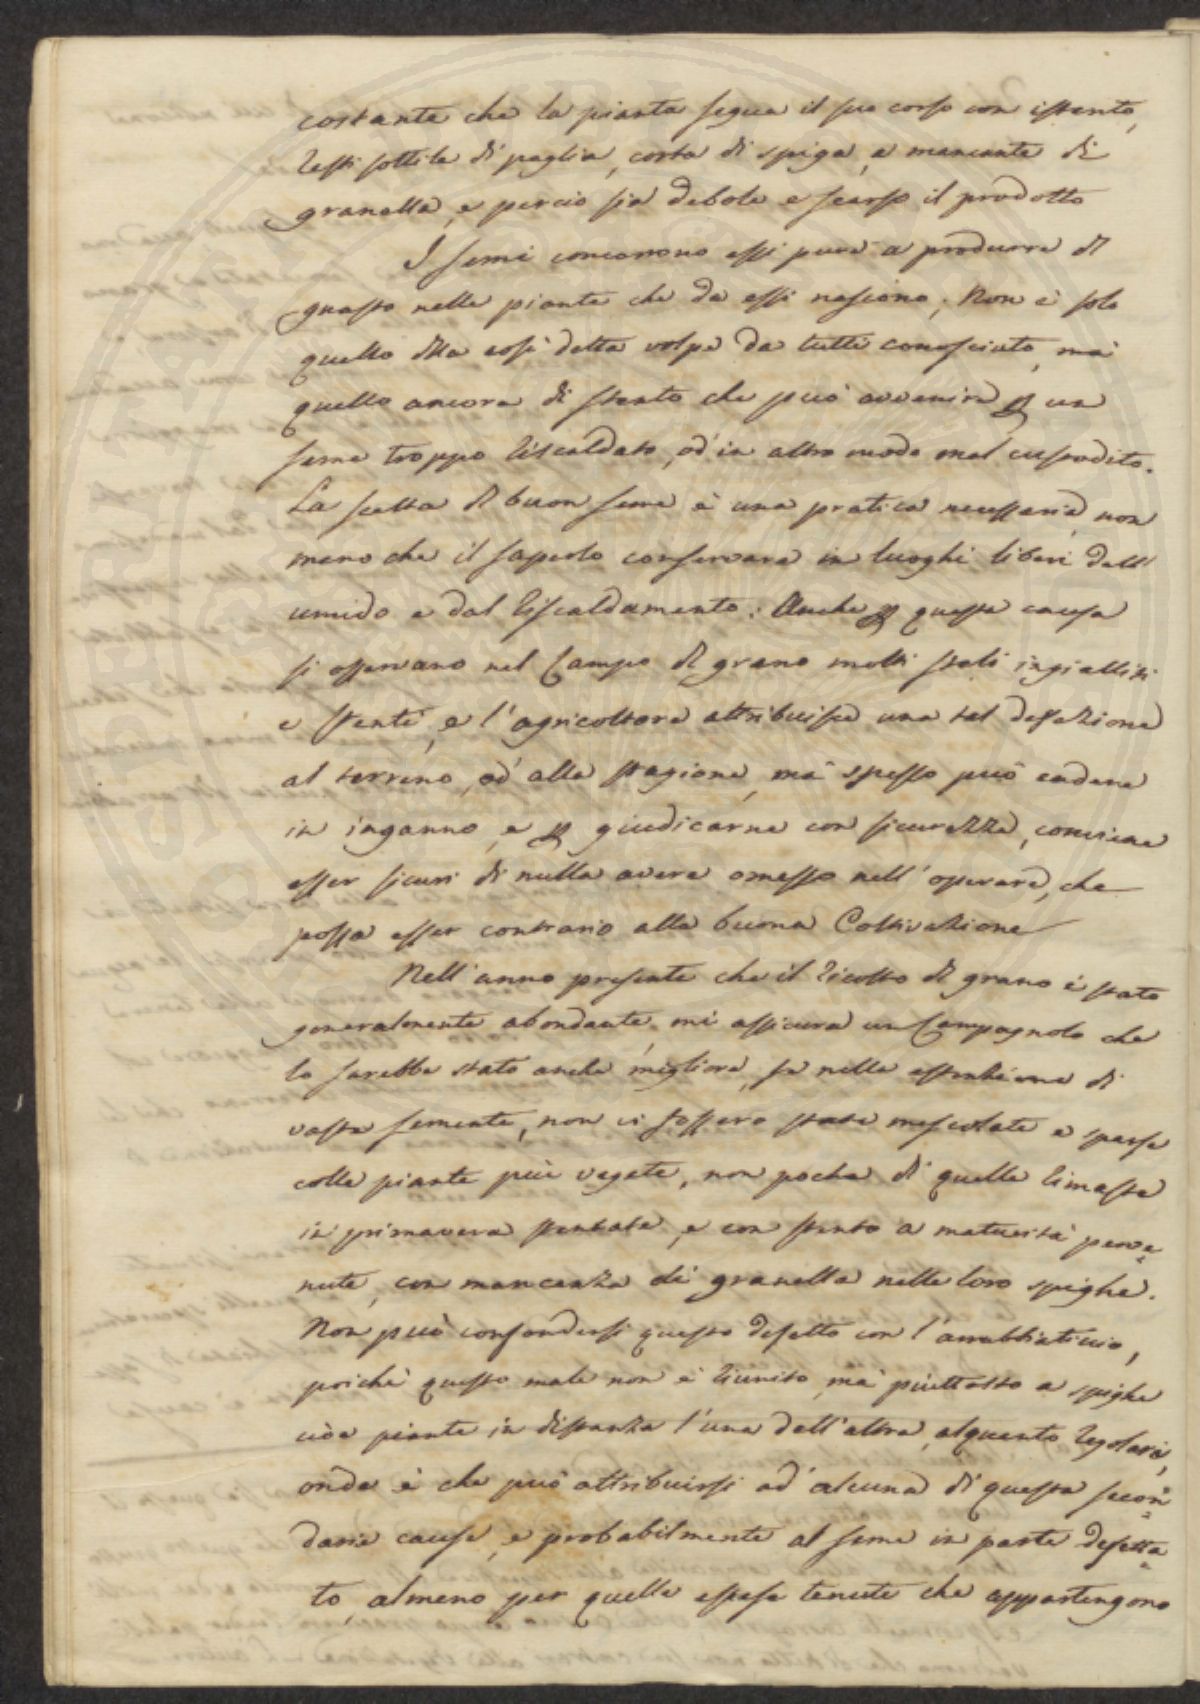 costante che la pianta segua il suo corso con istento,
resti sottile di paglia, corta di spiga, e mancante di
granella, e perciò sia debole e scarso il prodotto
I semi concorrono essi pure a produrre il
guasto nelle piante che da essi nascono. Non è solo
quello della così detta volpe da tutti conosciuto, ma
quello ancora di stento che può avvenire p un
seme troppo riscaldato, od in altro modo mal custodito.
La scelta di buon seme è una pratica necessaria, non
meno che il saperlo conservare in luoghi liberi dall'
umido e dal riscaldamento. Anche p questa causa
si osservano nel Campo di grano molti steli ingialliti
e stenti, e l'agricoltore attribuisce una tal defezione
al terreno, od alla stagione, ma spesso può cadere
in inganno, e p giudicarne con sicurezza, conviene
esser sicuri di nulla avere omesso nell'operare, che
possa esser contrario alla buona Coltivazione
Nell'anno presente che il ricolto di grano è stato
generalmente abondante, mi assicura un Campagnolo che
lo sarebbe stato anche migliore, se nella estenzione di
vasta semente, non vi fossero state mescolate e sparse
colle piante più vegete, non poche di quelle rimaste
in primavera stentate, e con stento a maturità perve=
nute, con mancanza di granella nelle loro spighe.
Non può confondersi questo difetto con l'arrabbiaticcio,
poichè questo male non è riunito, ma piuttosto a spighe
cioè piante in distanza l'una dall'altra, alquanto regolari,
onde è che può attribuirsi ad alcuna di queste secon=
darie cause, e probabilmente al seme in parte difetta=
to, almeno per quelle estese tenute che appartengono